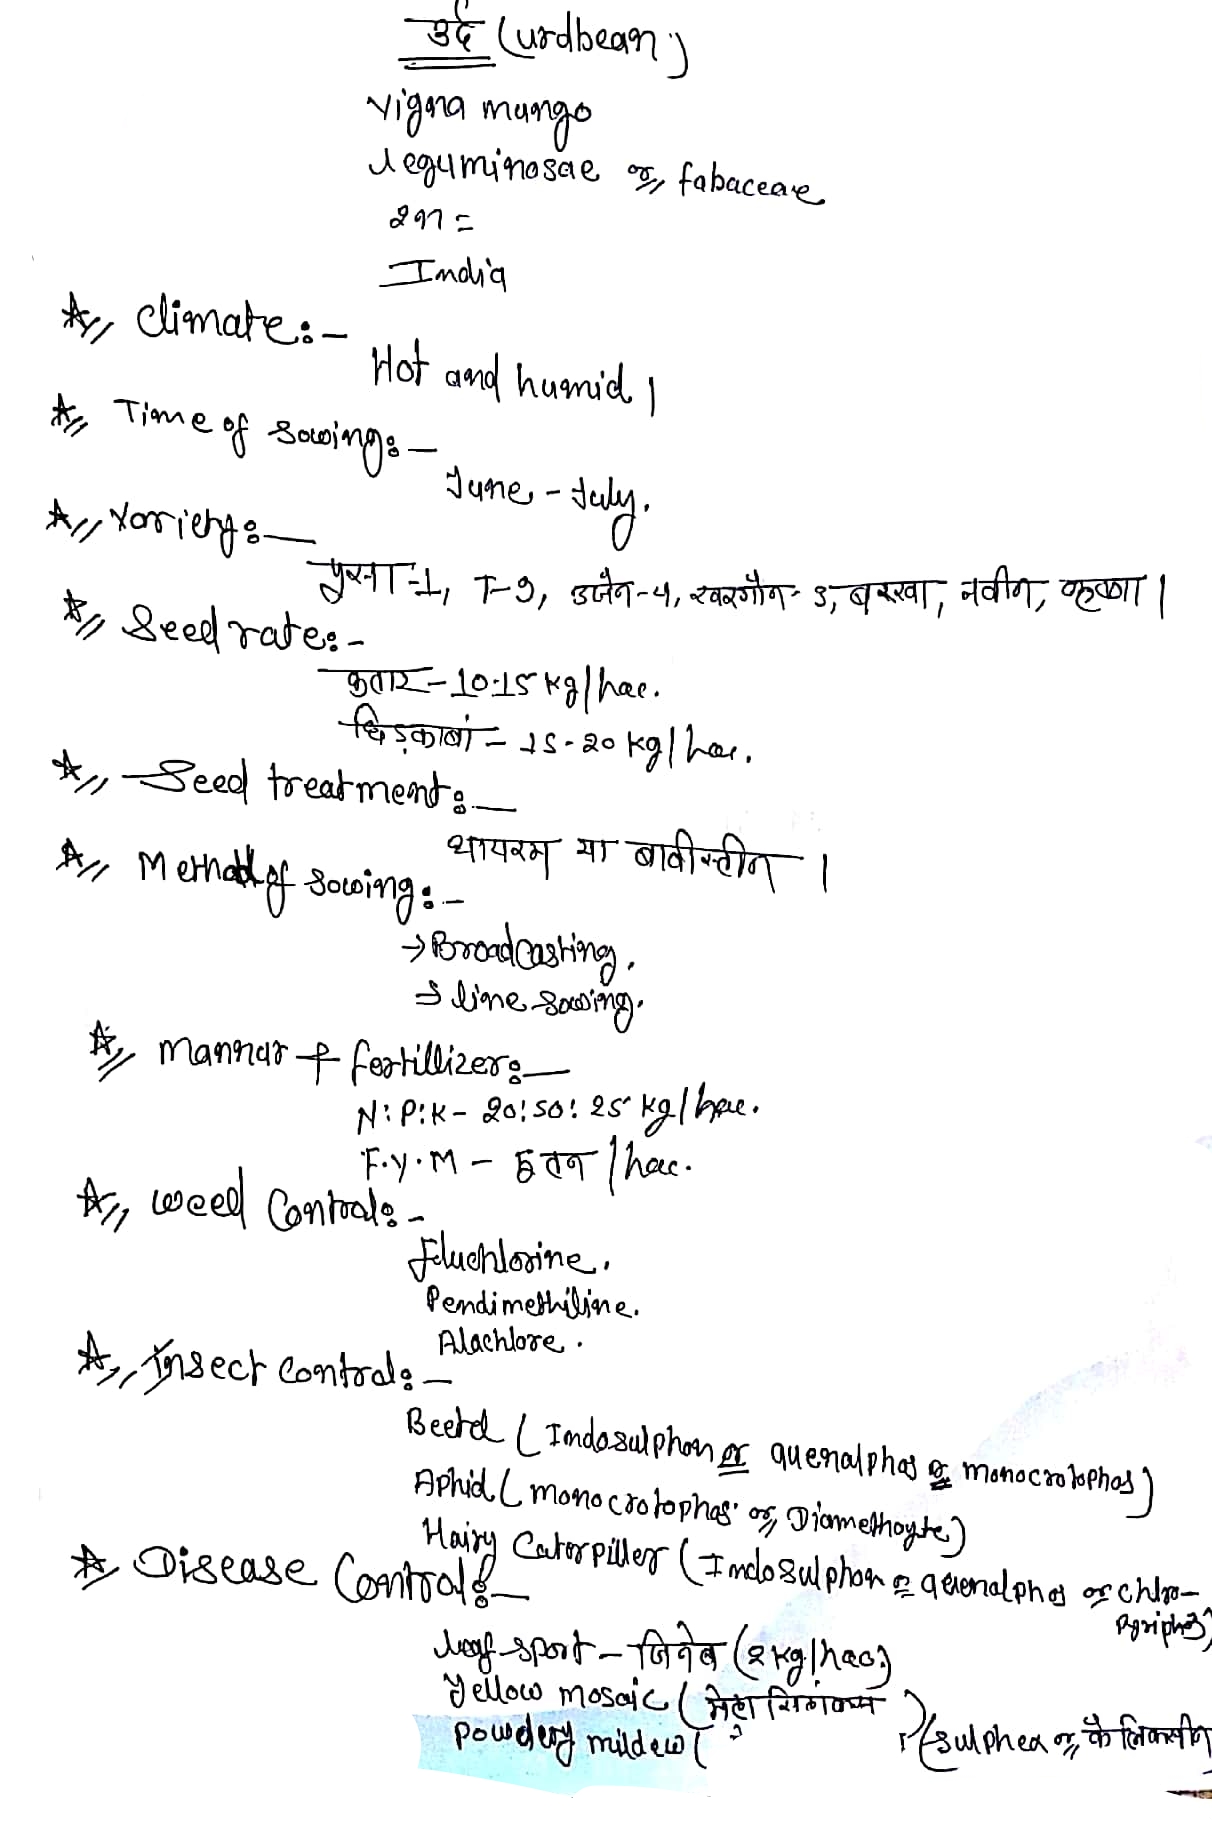 उर्द (urdbean)
Vigna mungo
Leguminosae or fabaceae
2n =
India
Climate:-
Hot and humid।
Time of sowing:-
June - July.
Variety:-
पुसा-1, T-9, उजैन-4, खरगौन- 3, बरखा, नवीन, कृष्णा।
Seed rate:-
कतार - 10-15 kg/hac.
छिड़कावां - 15-20 kg/hac.
Seed treatment:-
थायरम या बावीस्टीन ।
Method of sowing:-
→ Broadcasting.
→ line sowing.
Mannar + fertillizer:-
N:P:K - 20:50:25 kg/hac.
F.Y.M - 5 टन /hac.
Weed Control:-
Fluchlorine.
Pendimethiline.
Alachlore.
Insect Control:-
Beetel (Indosulphon or quenalphos or monocrotophos)
Aphid (monocrotophos or Diamethoyte)
Hairy Caterpiller (Indosulphon or quenalphos or chloro-
pyriphos)
Disease Control:-
leaf sport - जिनेब (2 kg/hac.)
Yellow mosaic (मेटा
Powdery mildew (